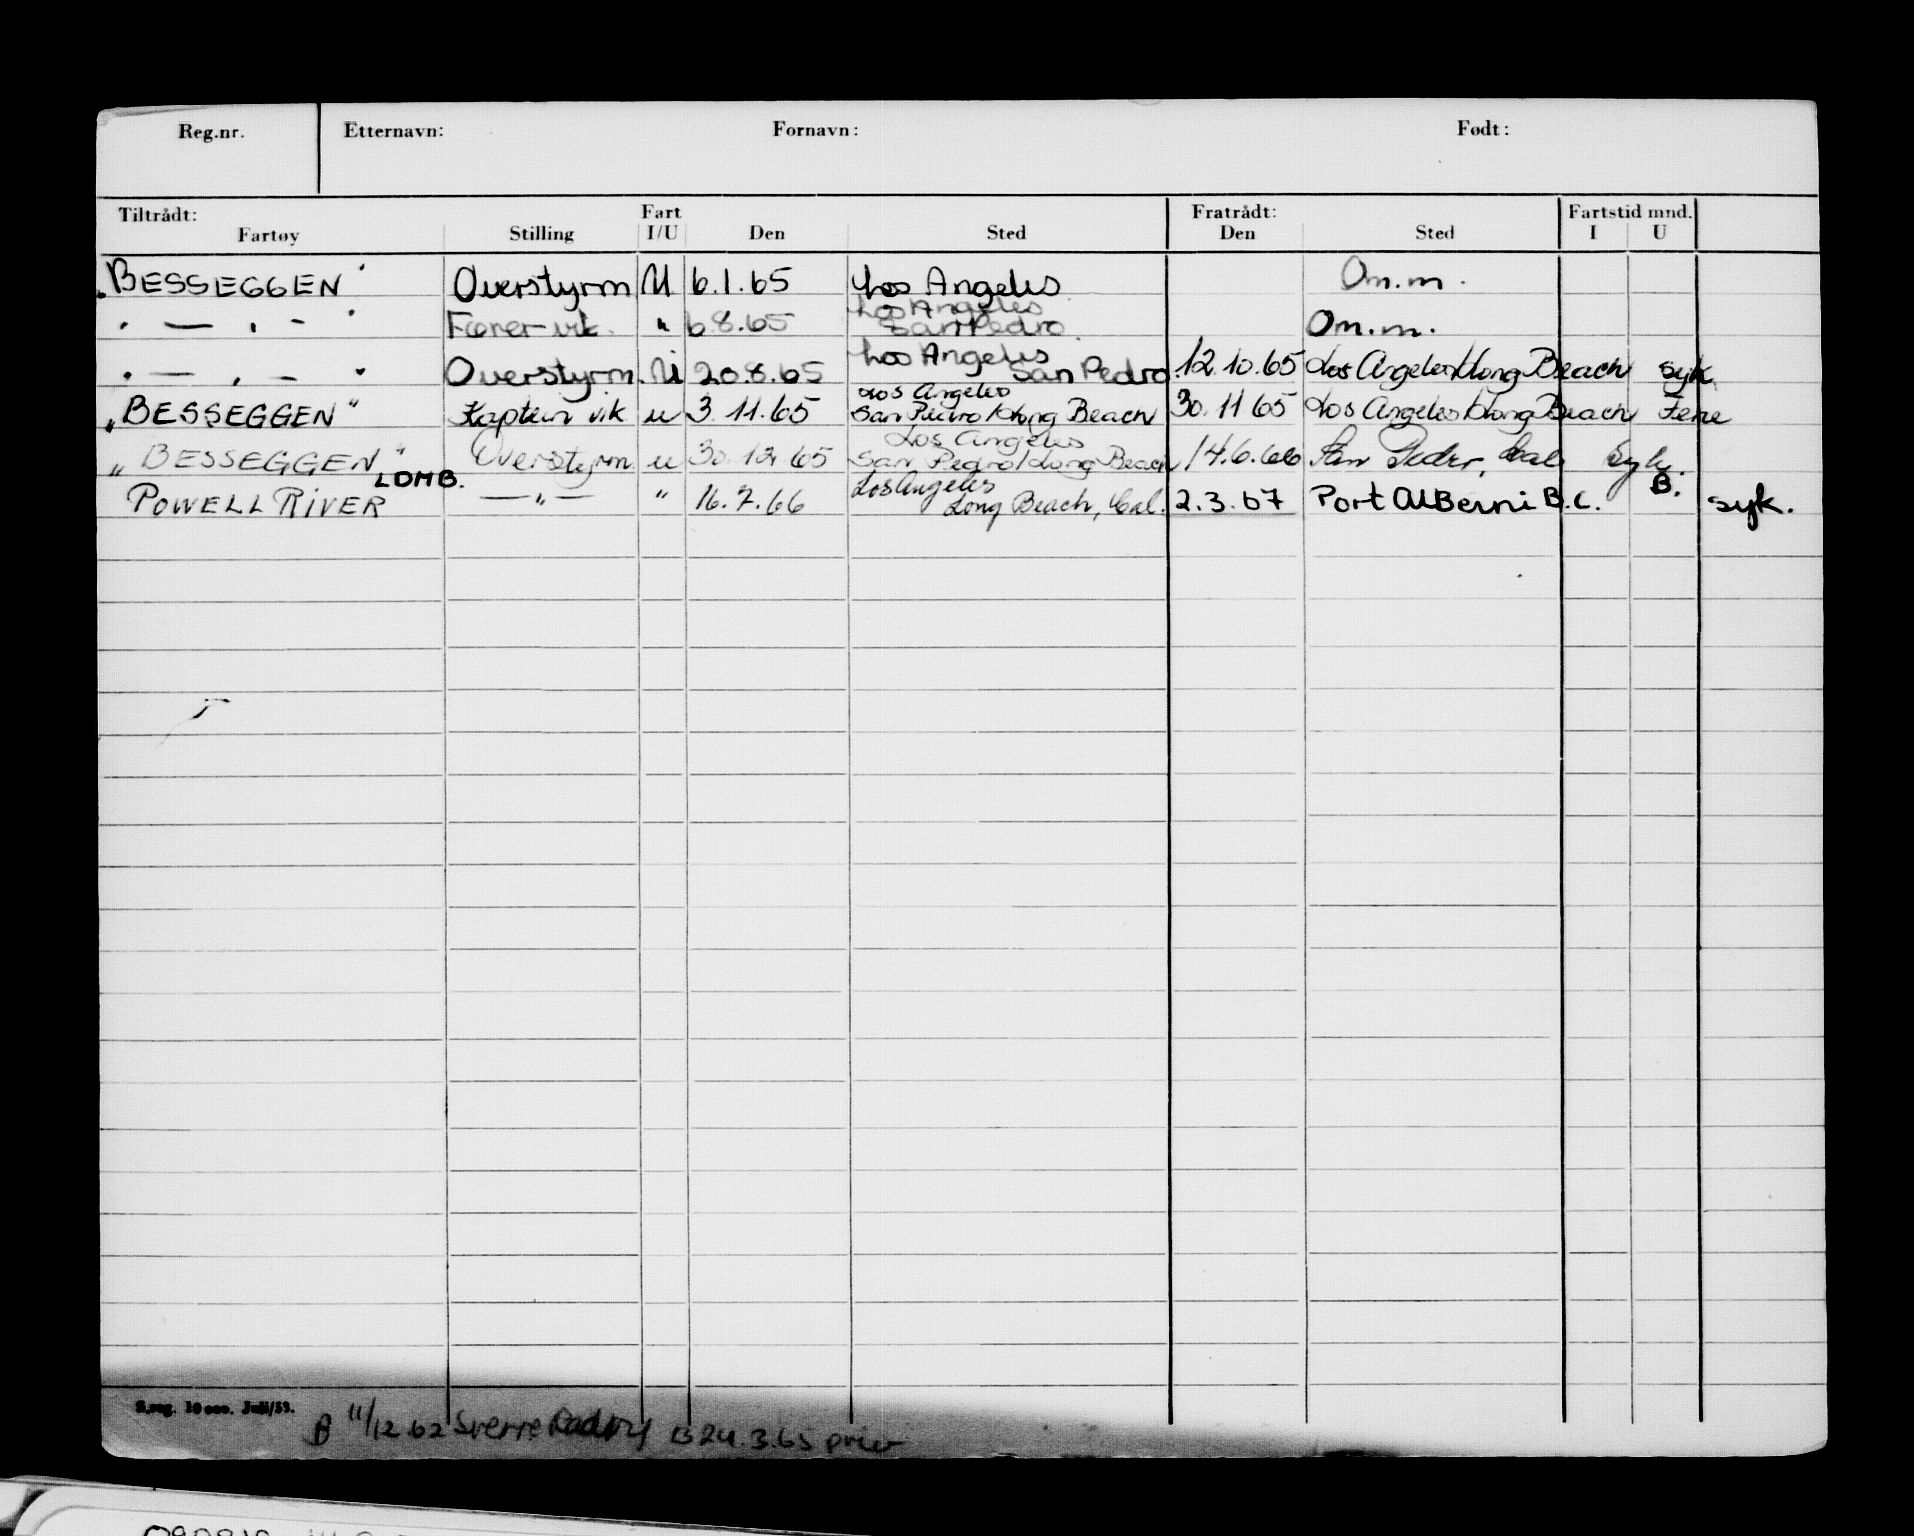 Reg.nr. Etternavn: Fornavn: Født:
Tiltrådt: Fart Fratrådt: Fartstid mnd.
Fartøy Stilling I/U Den Sted Den Sted I U
"BESSEGGEN" Overstyrm U 6.1.65 Los Angeles Om.m.
" — " — " Fører vik. " 6.8.65 Los Angeles San Pedro Om.m.
" — " — " Overstyrm. U 20.8.65 Los Angeles San Pedro 12.10.65 Los Angeles/Long Beach syk
"BESSEGGEN" Kaptein vik u 3.11.65 Los Angeles San Pedro/Long Beach 30.11 65 Los Angeles/Long Beach Ferie
"BESSEGGEN" Overstyrm u 30.12 65 Los Angeles San Pedro/Long Beach 14.6.66 San Pedro, Cal Syk.
POWELL RIVER LOMB. — " — " 16.7.66 Los Angeles Long Beach, Cal. 2.3.67 Port Alberni B.C. B. syk.
S.reg. 10 000. Juli/53.
B 11/12.62 Sverre 24.3.65